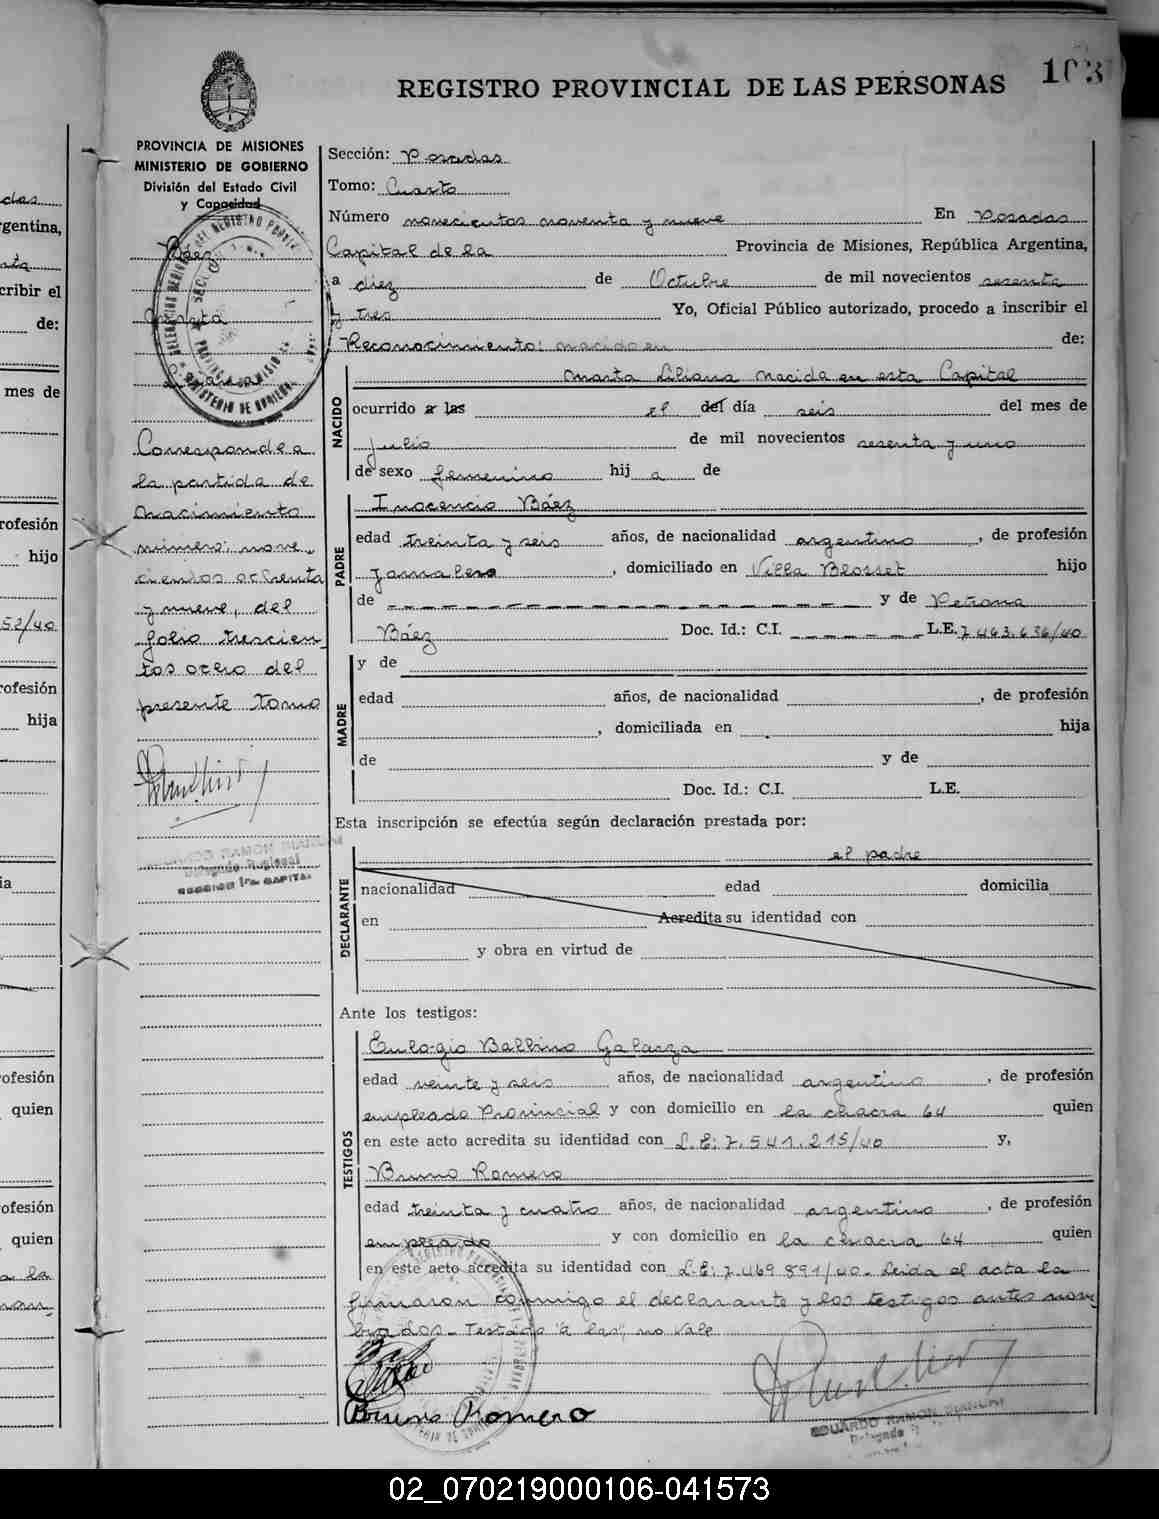 REGISTRO PROVINCIAL DE LAS PERSONAS
PROVINCIA DE MISIONES
MINISTERIO DE GOBIERNO
División del Estado Civil
y Capacidad
Báez
Marta
Liliana
Corresponde a
la partida de
nacimiento
número: nove-
cientos ochenta
y nueve, del
folio trescien
tos ocho del
presente tomo
Delegado Regional
SECCION 1ra. CAPITAL
Sección: Posadas
Tomo: Cuarto
Número novecientos noventa y nueve En Posadas
Capital de la Provincia de Misiones, República Argentina,
a diez de Octubre de mil novecientos sesenta
y tres Yo, Oficial Público autorizado, procedo a inscribir el
Reconocimiento: nacido en de:
NACIDO
Marta Liliana nacida en esta Capital
ocurrido a las el del día seis del mes de
Julio de mil novecientos sesenta y uno
de sexo femenino hija de
PADRE
Inocencio Báez
edad treinta y seis años, de nacionalidad argentino, de profesión
Jornalero, domiciliado en Villa Blosset hijo
de y de Petrona
Báez Doc. Id.: C.I. L.E. 7.463.636/40
MADRE
y de
edad años, de nacionalidad , de profesión
, domiciliada en hija
de y de
Doc. Id.: C.I. L.E.
Esta inscripción se efectúa según declaración prestada por:
DECLARANTE
el padre
nacionalidad edad domicilia
en Acredita su identidad con
y obra en virtud de
Ante los testigos:
TESTIGOS
Eulogio Balbino Galarza
edad veinte y seis años, de nacionalidad argentino, de profesión
empleado Provincial y con domicilio en la chacra 64 quien
en este acto acredita su identidad con L.E: 7.541.215/40 y,
Bruno Romero
edad treinta y cuatro años, de nacionalidad argentino, de profesión
empleado y con domicilio en la chacra 64 quien
en este acto acredita su identidad con L.E: 7.469.891/40- Leida el acta la
firmaron conmigo el declarante y los testigos antes nom
brados- Testado "a las", no vale
Bruno Romero
EDUARDO RAMON
Delegado
02_070219000106-041573